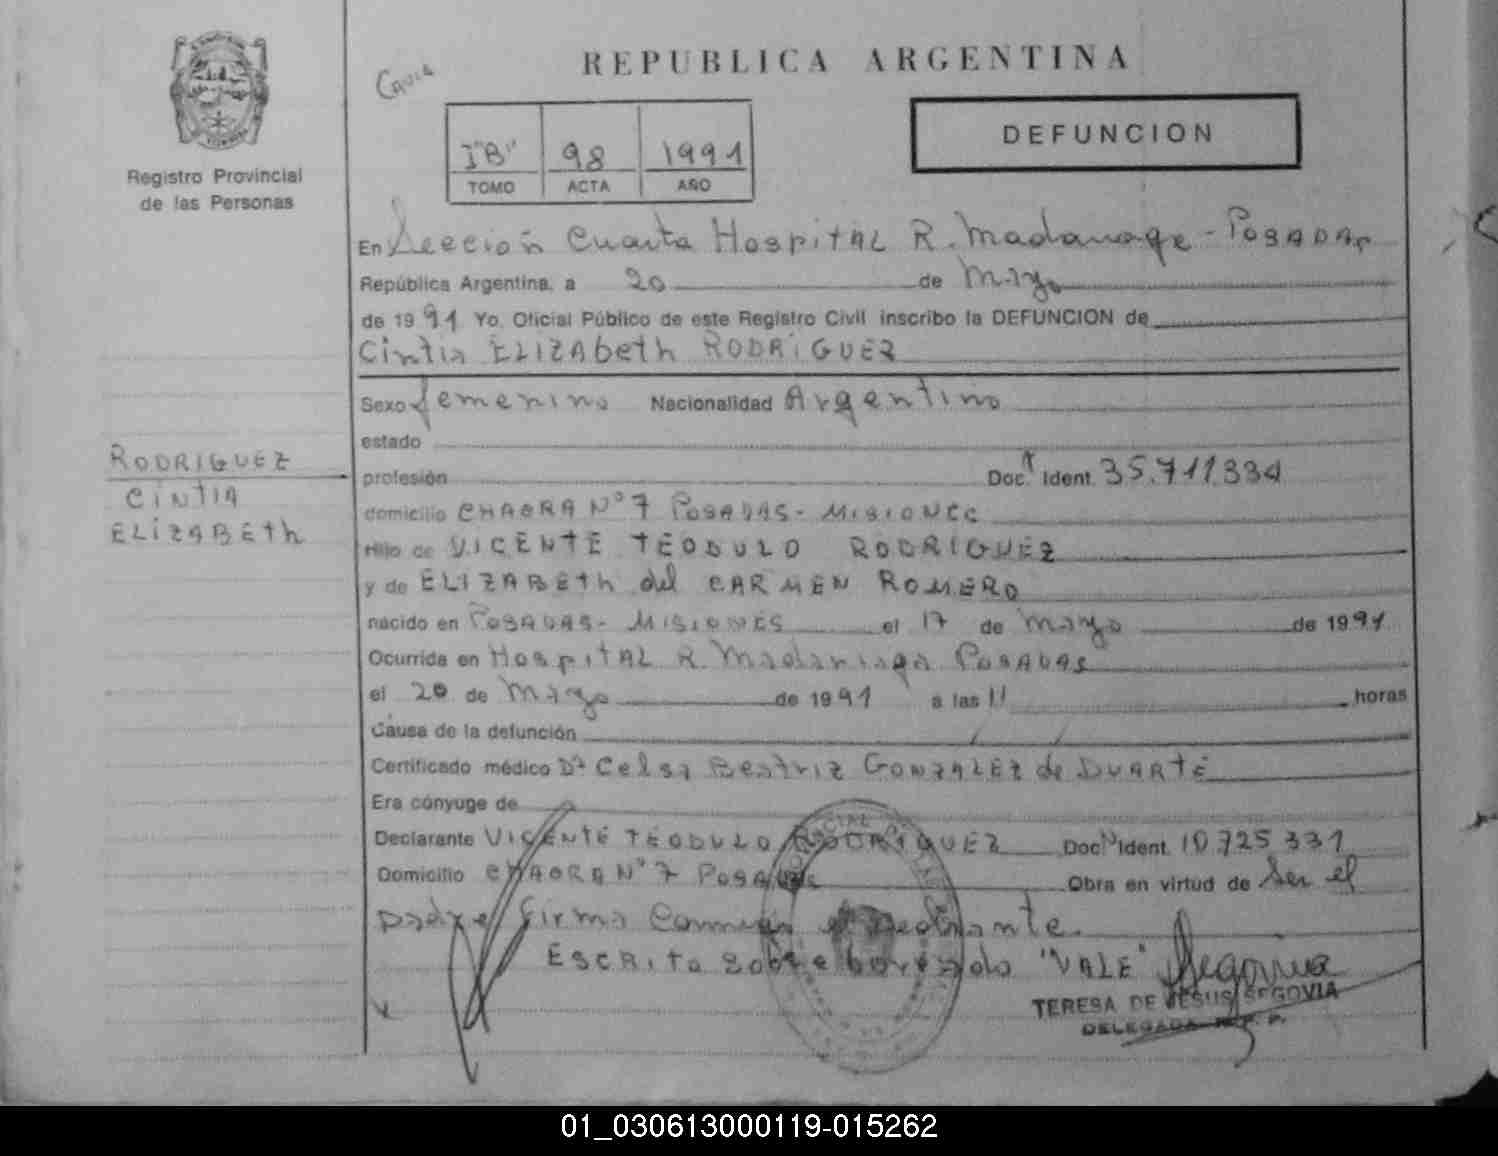 REPUBLICA ARGENTINA
I"B" 98 1991
TOMO ACTA AÑO
DEFUNCION
Registro Provincial
de las Personas
En Sección Cuarta Hospital R. Madariaga - POSADAS
República Argentina, a 20 de Mayo
de 1991 Yo, Oficial Público de este Registro Civil inscribo la DEFUNCION de
Cintia ELIZAbeth RODRIGUEZ
Sexo femenino Nacionalidad Argentino
estado
RODRIGUEZ
CINTIA
ELIZABETh
profesión Doc. Ident. 35.711.334
domicilio CHACRA N° 7 POSADAS - MISIONES
Hijo de VICENTE TEODULO RODRIGUEZ
y de ELIZABETh del CARMEN ROMERO
nacido en POSADAS - MISIONES el 17 de mayo de 1991
Ocurrida en HospITAL R. Madariaga POSADAS
el 20 de Mayo de 1991 a las 11 horas
Causa de la defunción
Certificado médico Dra Celsa Beatriz GONZALEZ de DUARTE
Era cónyuge de
Declarante VICENTE TEODULO RODRIGUEZ Doc. Ident. 10.725.331
Domicilio CHACRA N° 7 POSADAS Obra en virtud de Ser el
padre firma Conmigo el Declarante.
Escrito sobre borrado "VALE" Segovia
TERESA DE JESUS SEGOVIA
DELEGADA R. P. P.
01_030613000119-015262